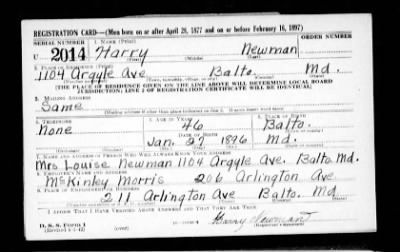 REGISTRATION CARD—(Men born on or after April 28, 1877 and on or before February 16, 1897)
SERIAL NUMBER 1. NAME (Print)
U 2014 Harry Newman
(First) (Middle) (Last)
2. PLACE OF RESIDENCE (Print)
1104 Argyle Ave Balto. Md.
(Number and street) (Town, township, village, or city) (County) (State)
[THE PLACE OF RESIDENCE GIVEN ON THE LINE ABOVE WILL DETERMINE LOCAL BOARD
JURISDICTION; LINE 2 OF REGISTRATION CERTIFICATE WILL BE IDENTICAL]
3. MAILING ADDRESS
Same
4. TELEPHONE 5. AGE IN YEARS 6. PLACE OF BIRTH
None 46 Balto.
DATE OF BIRTH
Jan. 27 1896 Md.
7. NAME AND ADDRESS OF PERSON WHO WILL ALWAYS KNOW YOUR ADDRESS
Mrs Louise Newman 1104 Argyle Ave. Balto Md.
8. EMPLOYER'S NAME AND ADDRESS
McKinley Morris 206 Arlington Ave
9. PLACE OF EMPLOYMENT OR BUSINESS
211 Arlington Ave Balto. Md
I AFFIRM THAT I HAVE VERIFIED ABOVE ANSWERS AND THAT THEY ARE TRUE.
D. S. S. Form 1 Harry Newman
(over)